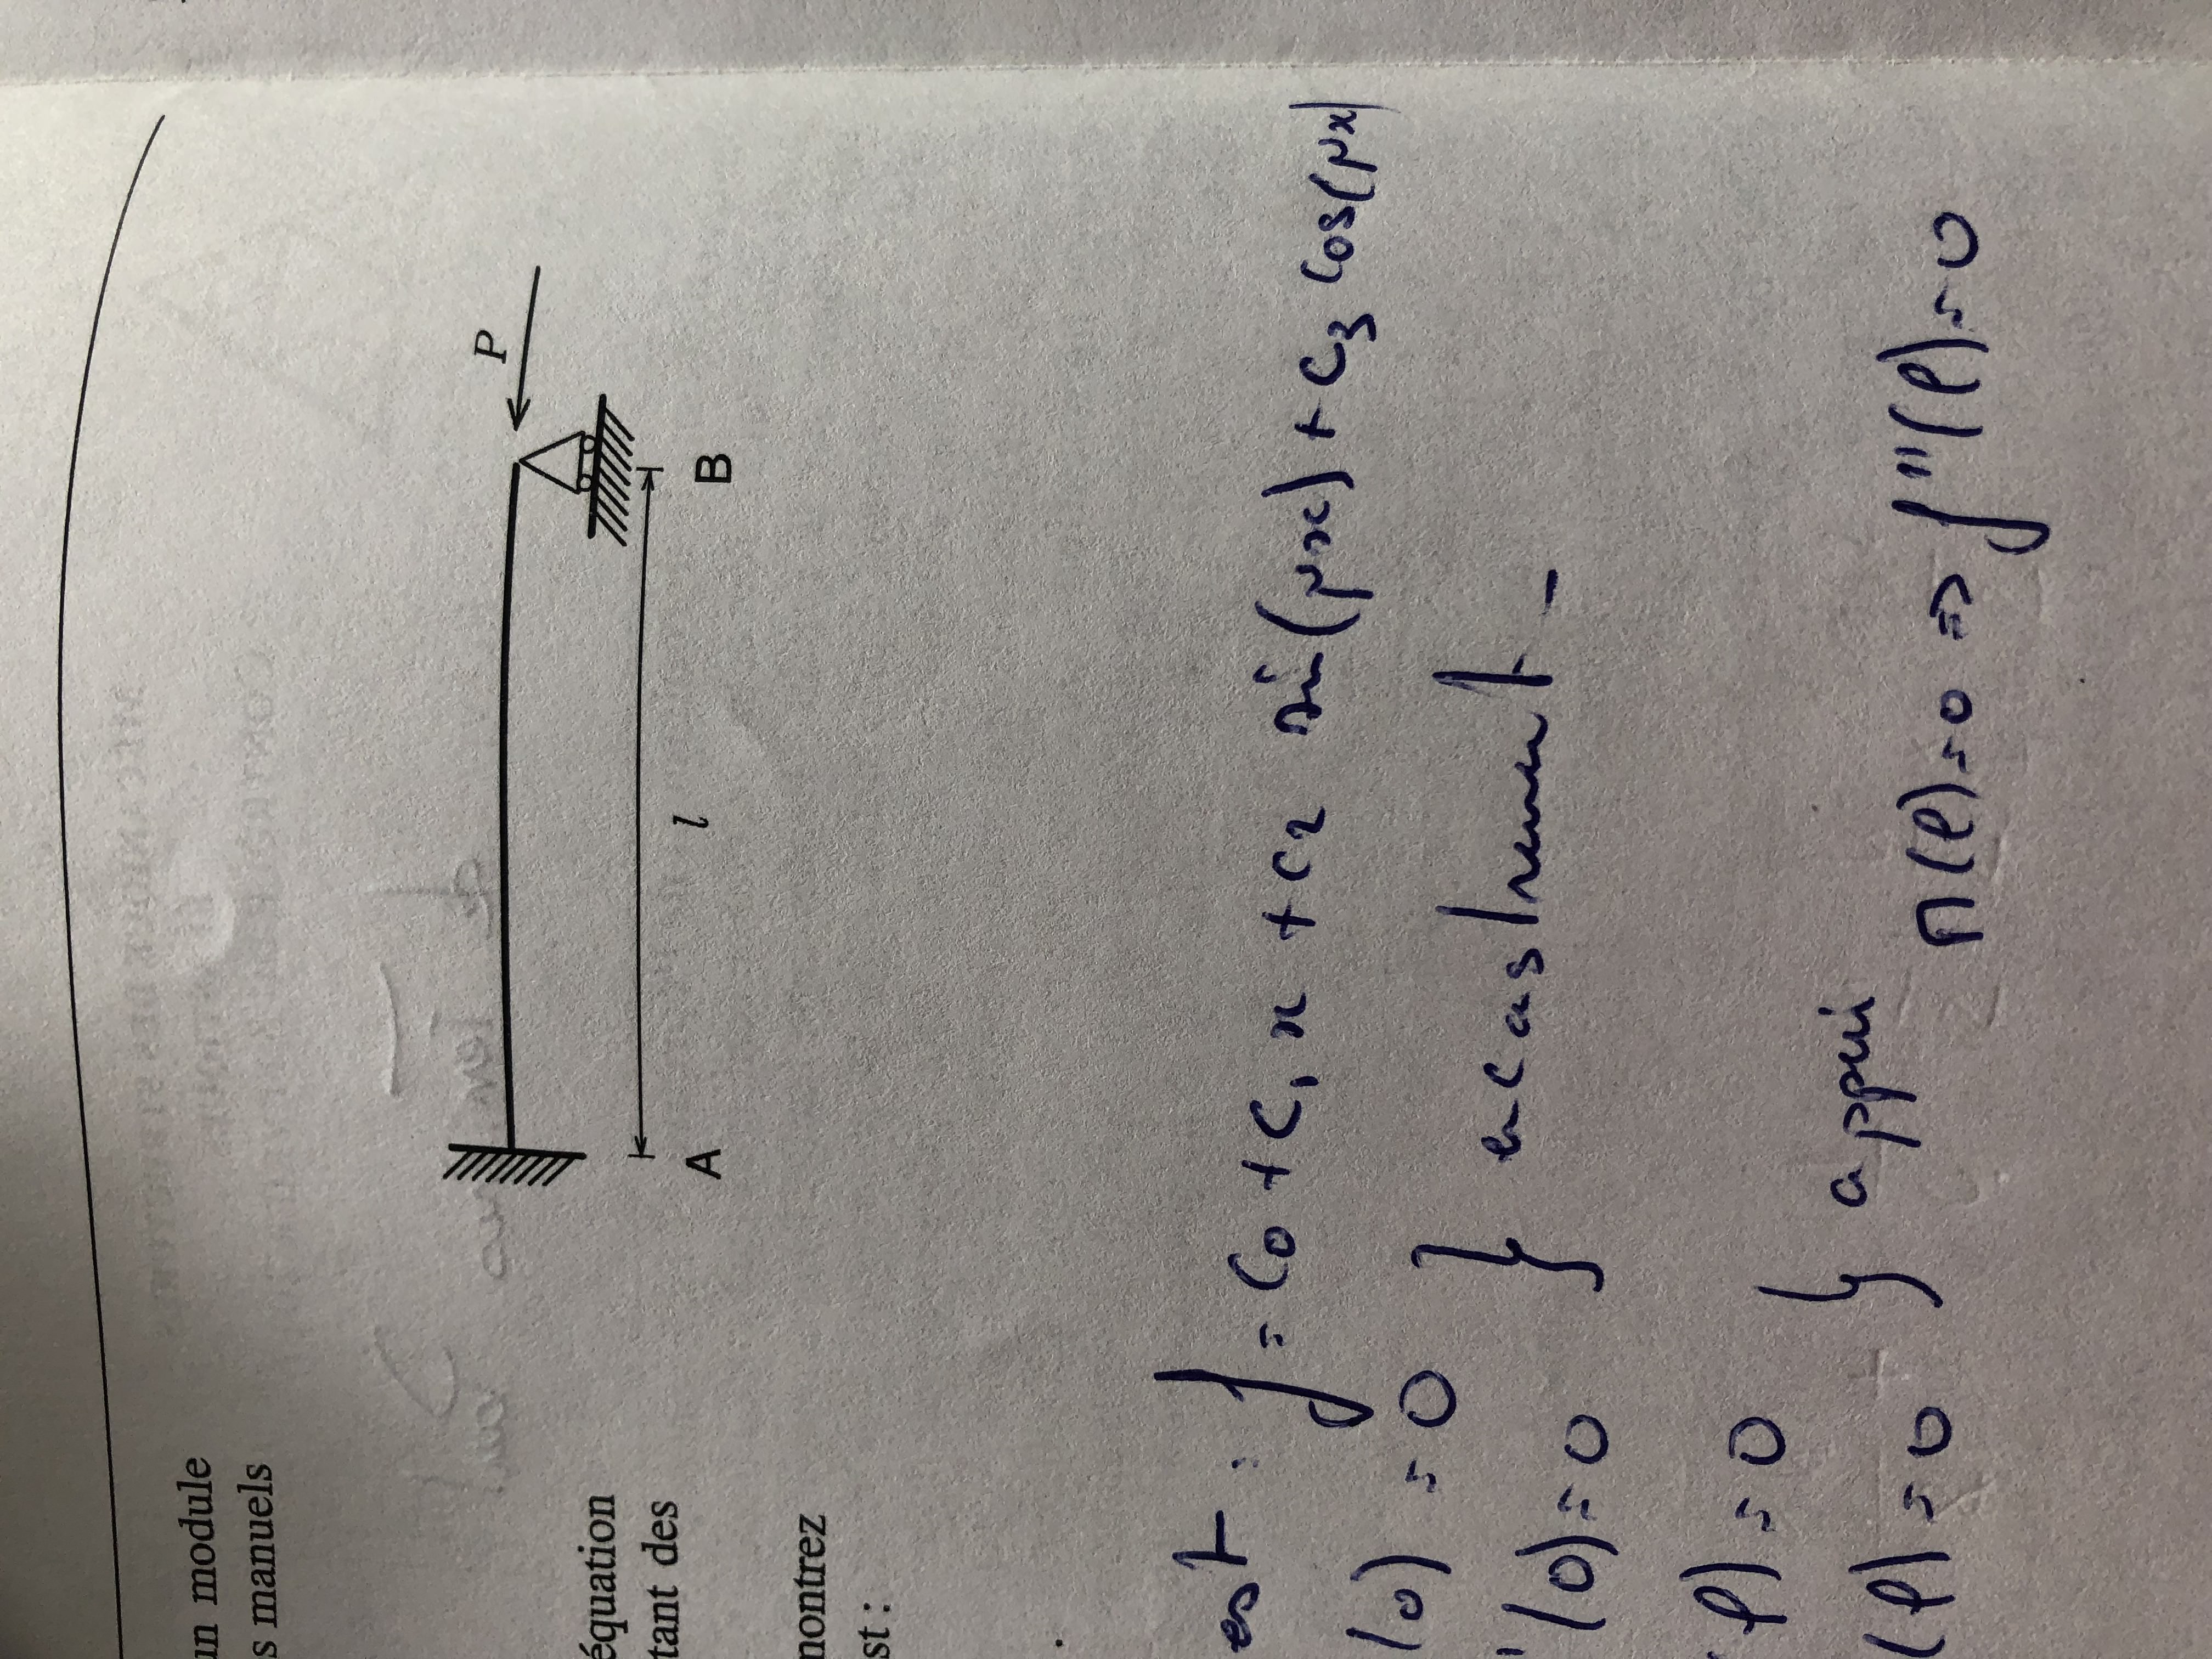 un module
s manuels
P
équation
tant des
l
A
B
montrez
st :
.
est : f = C0 + C1 x + C2 sin(μx) + C3 cos(μx)
(0) = 0
'(0) = 0
} encastrement -
(l) = 0
(l) = 0
} appui
M(l) = 0 => f''(l) = 0